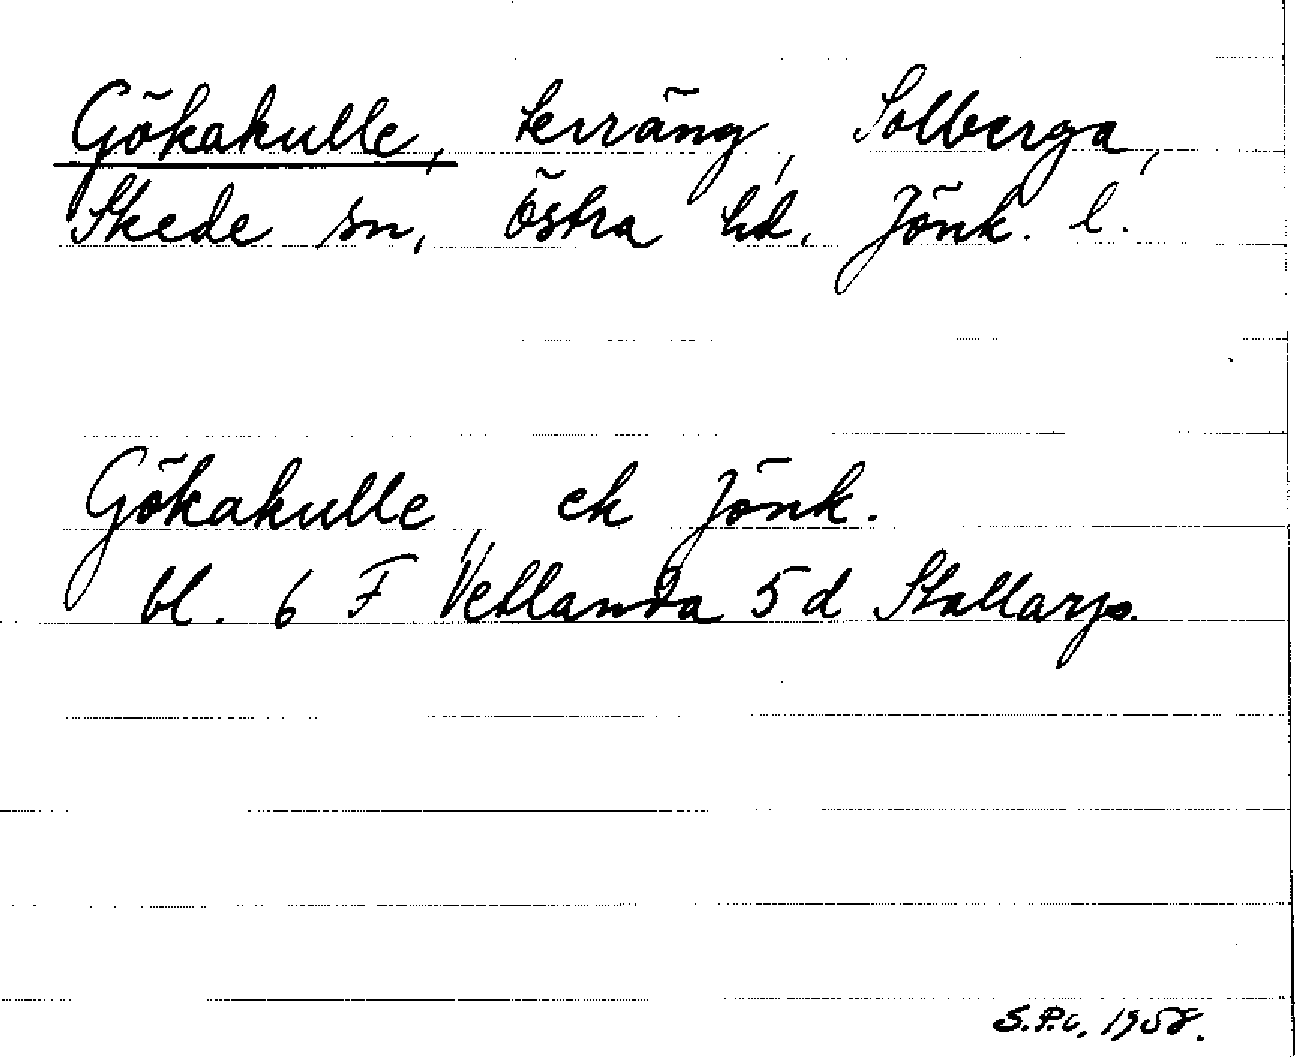 Gökakulle, terräng, Solberga,
Skede sn, Östra hd, Jönk. l.
Gökakulle, ek Jönk.
bl. 6 F Vetlanda 5 d Stallarp.
1958.